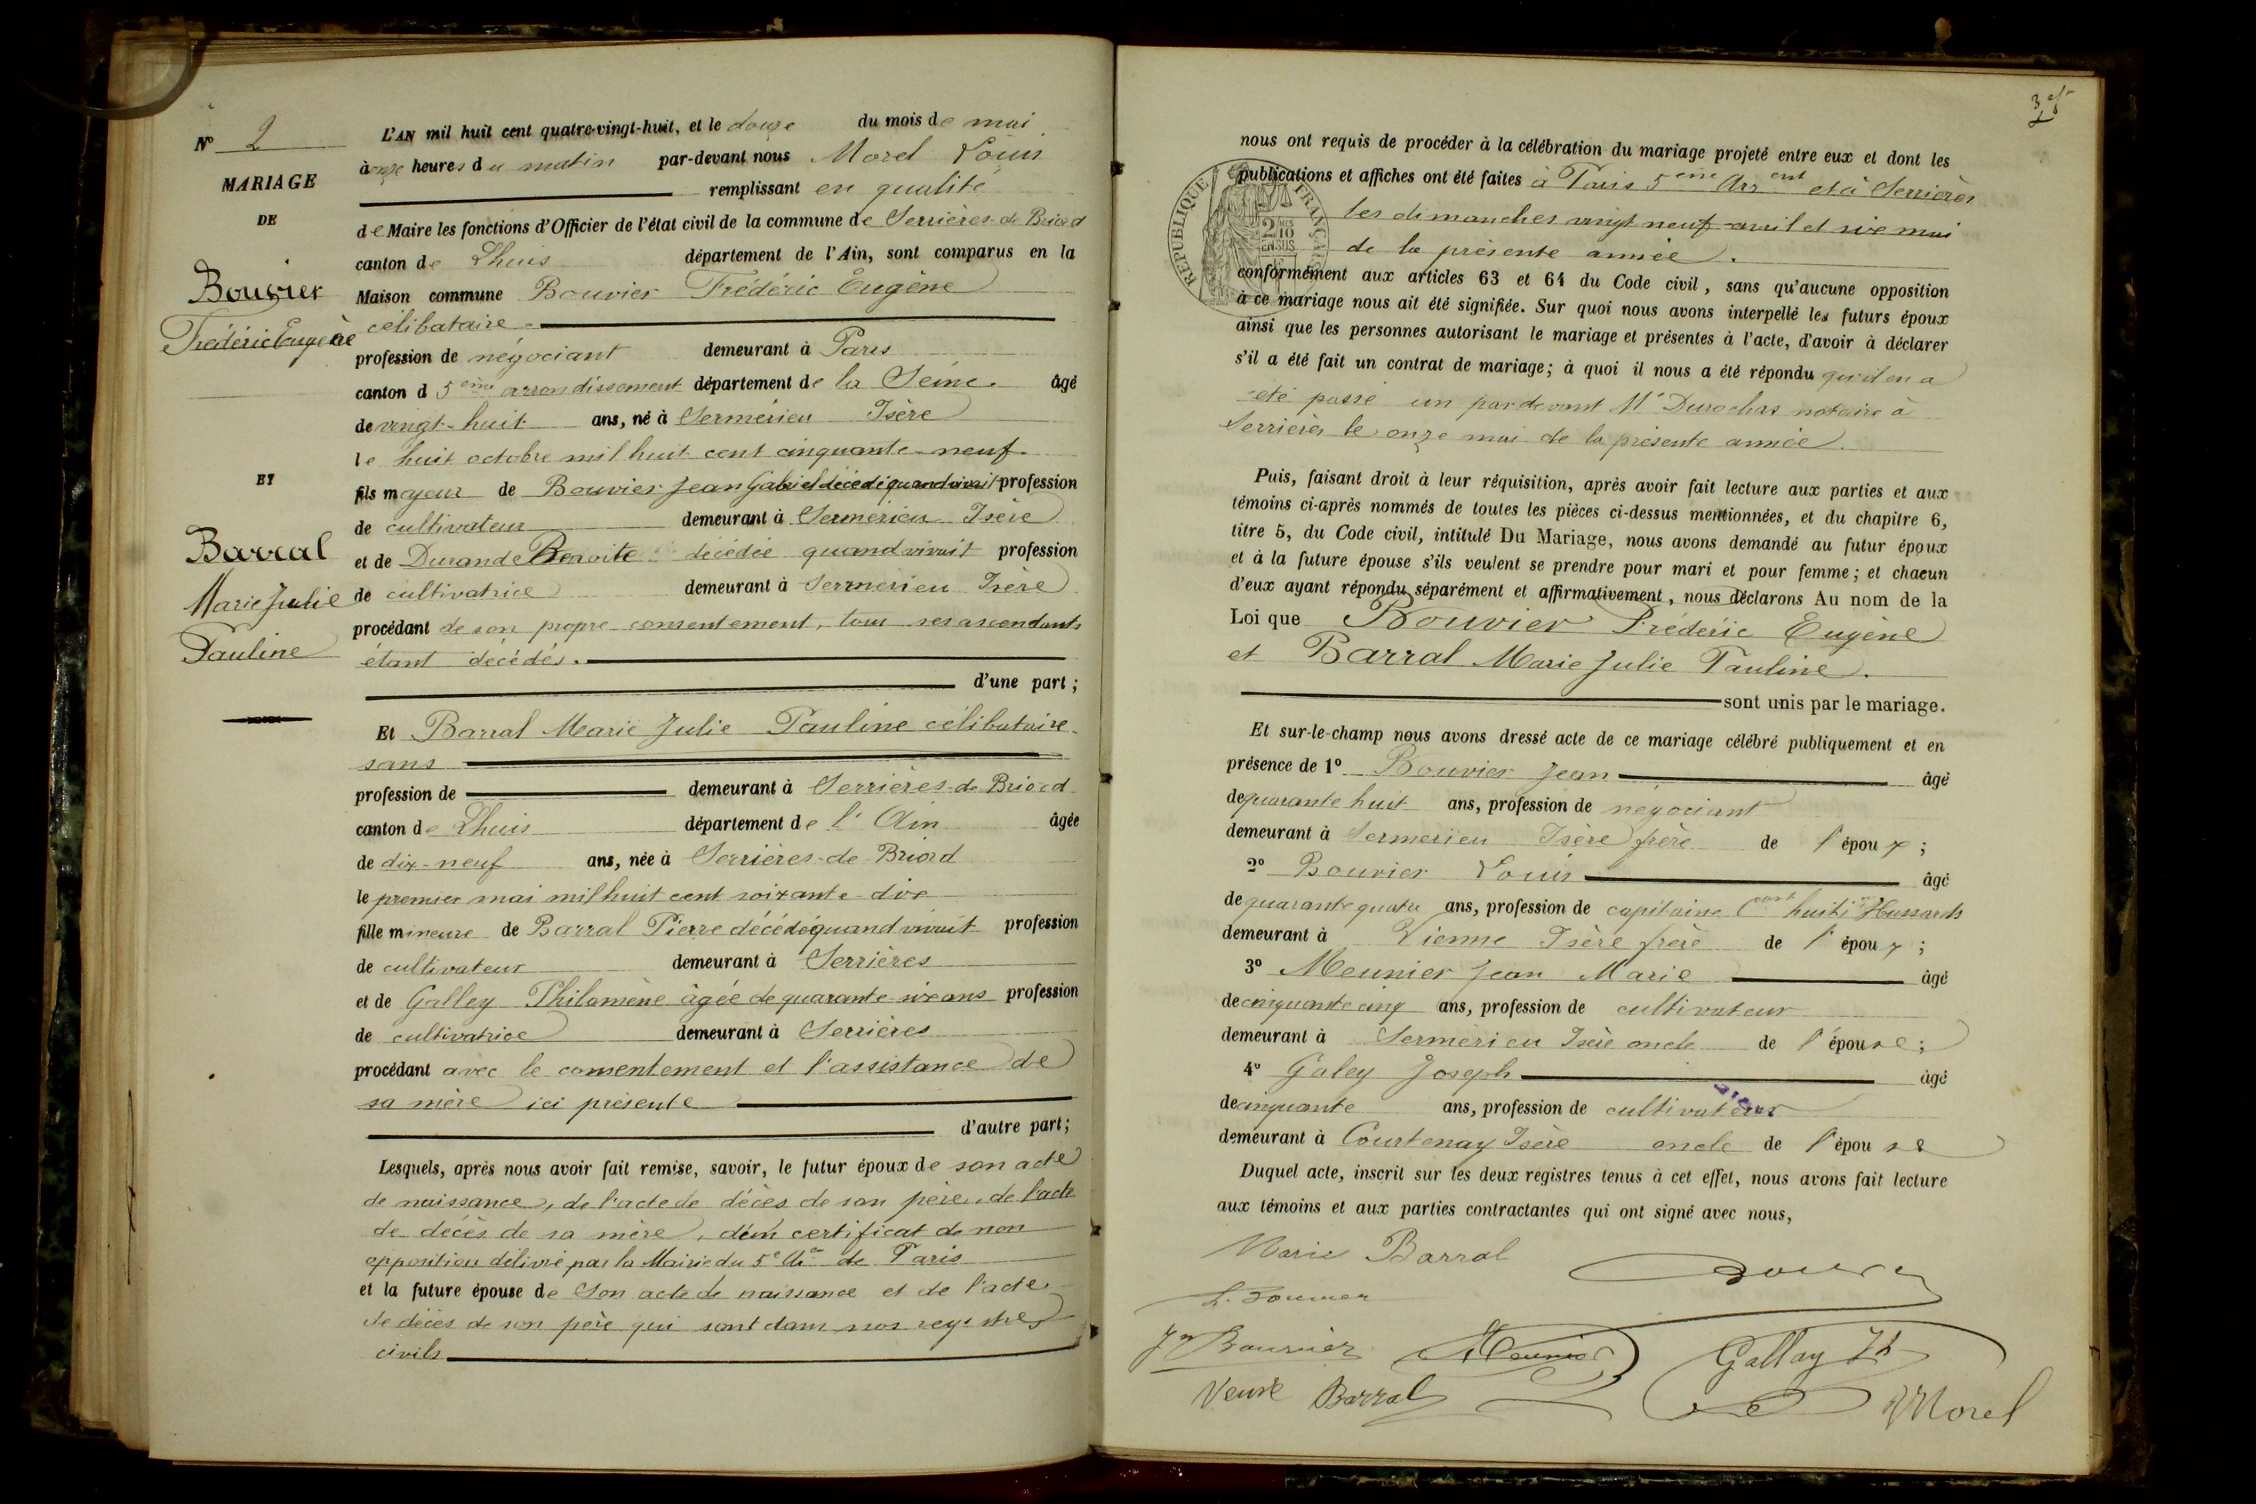 N° 2
MARIAGE
DE
Bouvier
Frédéric Eugène
ET
Barral
Marie Julie
Pauline
L'AN mil huit cent quatre-vingt-huit, et le douze du mois de mai
à onze heures du matin par-devant nous Morel Louis
remplissant en qualité
de Maire les fonctions d'Officier de l'état civil de la commune de Serrières-de-Briord
canton de Lhuis département de l'Ain, sont comparus en la
Maison commune Bouvier Frédéric Eugène
célibataire
profession de négociant demeurant à Paris
canton d 5ème arrondissement département de la Seine. âgé
de vingt-huit ans, né à Sermérieu Isère
le huit octobre mil huit cent cinquante-neuf
fils mayeur de Bouvier Jean Gabriel décédé quand vivait profession
de cultivateur demeurant à Sermérieu Isère
et de Durande Benoite décédée quand vivait profession
de cultivatrice demeurant à Sermérieu Isère
procédant de son propre consentement, tous ses ascendants
étant décédés.
d'une part ;
Et Barral Marie Julie Pauline célibataire
sans
profession de demeurant à Serrières-de-Briord
canton de Lhuis département de l'Ain âgée
de dix-neuf ans, née à Serrières-de-Briord
le premier mai mil huit cent soixante-dix
fille mineure de Barral Pierre décédé quand vivait profession
de cultivateur demeurant à Serrières
et de Galley Philomène âgée de quarante-six ans profession
de cultivatrice demeurant à Serrières
procédant avec le consentement et l'assistance de
sa mère ici présente
d'autre part ;
Lesquels, après nous avoir fait remise, savoir, le futur époux de son acte
de naissance, de l'acte de décès de son père, de l'acte
de décès de sa mère, d'un certificat de non
opposition délivré par la Mairie du 5e Ar de Paris
et la future épouse de Son acte de naissance et de l'acte
de décès de son père qui sont dans nos registres
civils
3
RÉPUBLIQUE FRANÇAISE
2
10
EN SUS
nous ont requis de procéder à la célébration du mariage projeté entre eux et dont les
publications et affiches ont été faites à Paris 5ème Arrent et à Serrières
les dimanches vingt neuf avril et six mai
de la présente année.
conformément aux articles 63 et 64 du Code civil, sans qu'aucune opposition
à ce mariage nous ait été signifiée. Sur quoi nous avons interpellé les futurs époux
ainsi que les personnes autorisant le mariage et présentes à l'acte, d'avoir à déclarer
s'il a été fait un contrat de mariage ; à quoi il nous a été répondu qu'il en a
été passé un par devant Me notaire à
Serrières le onze mai de la présente année
Puis, faisant droit à leur réquisition, après avoir fait lecture aux parties et aux
témoins ci-après nommés de toutes les pièces ci-dessus mentionnées, et du chapitre 6,
titre 5, du Code civil, intitulé Du Mariage, nous avons demandé au futur époux
et à la future épouse s'ils veulent se prendre pour mari et pour femme ; et chacun
d'eux ayant répondu séparément et affirmativement, nous déclarons Au nom de la
Loi que Bouvier Frédéric Eugène
et Barral Marie Julie Pauline.
sont unis par le mariage.
Et sur-le-champ nous avons dressé acte de ce mariage célébré publiquement et en
présence de 1° Bouvier Jean âgé
de quarante huit ans, profession de négociant
demeurant à Sermerieu Isère frère de l'époux ;
2° Bouvier Louis âgé
de quarante quatre ans, profession de capitaine huit Hussards
demeurant à Vienne Isère frère de l'époux ;
3° Meunier Jean Marie âgé
de cinquante cinq ans, profession de cultivateur
demeurant à Sermérieu Isère oncle de l'épouse ;
4° Galey Joseph âgé
de cinquante ans, profession de cultivateur
demeurant à Courtenay Isère oncle de l'épouse
Duquel acte, inscrit sur les deux registres tenus à cet effet, nous avons fait lecture
aux témoins et aux parties contractantes qui ont signé avec nous,
Marie Barral
L. Bouvier
Jn Bouvier Meunier Gallay Jh
Veuve Barral Morel